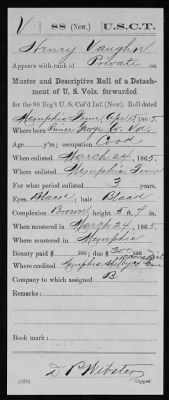 V | 88 (New.) | U.S.C.T.
Henry Vaughn
Appears with rank of Private on
Muster and Descriptive Roll of a Detach-
ment of U. S. Vols. forwarded
for the 88 Reg't U. S. Col'd Inf. (New). Roll dated
Memphis Tenn, Apr 13, 1865.
Where born Prince George Co. Va.
Age y'rs; occupation Cook
When enlisted March 24, 1865.
Where enlisted Memphis Tenn
For what period enlisted 3 years.
Eyes Black; hair Black
Complexion Brown; height 5 ft. 7 in.
When mustered in March 24, 1865.
Where mustered in Memphis
Bounty paid $ 100; due $ 300 100
Where credited Memphis, Shelby Co. Tenn
Company to which assigned B
Remarks:
Book mark:
D. P. Webster
Copyist.